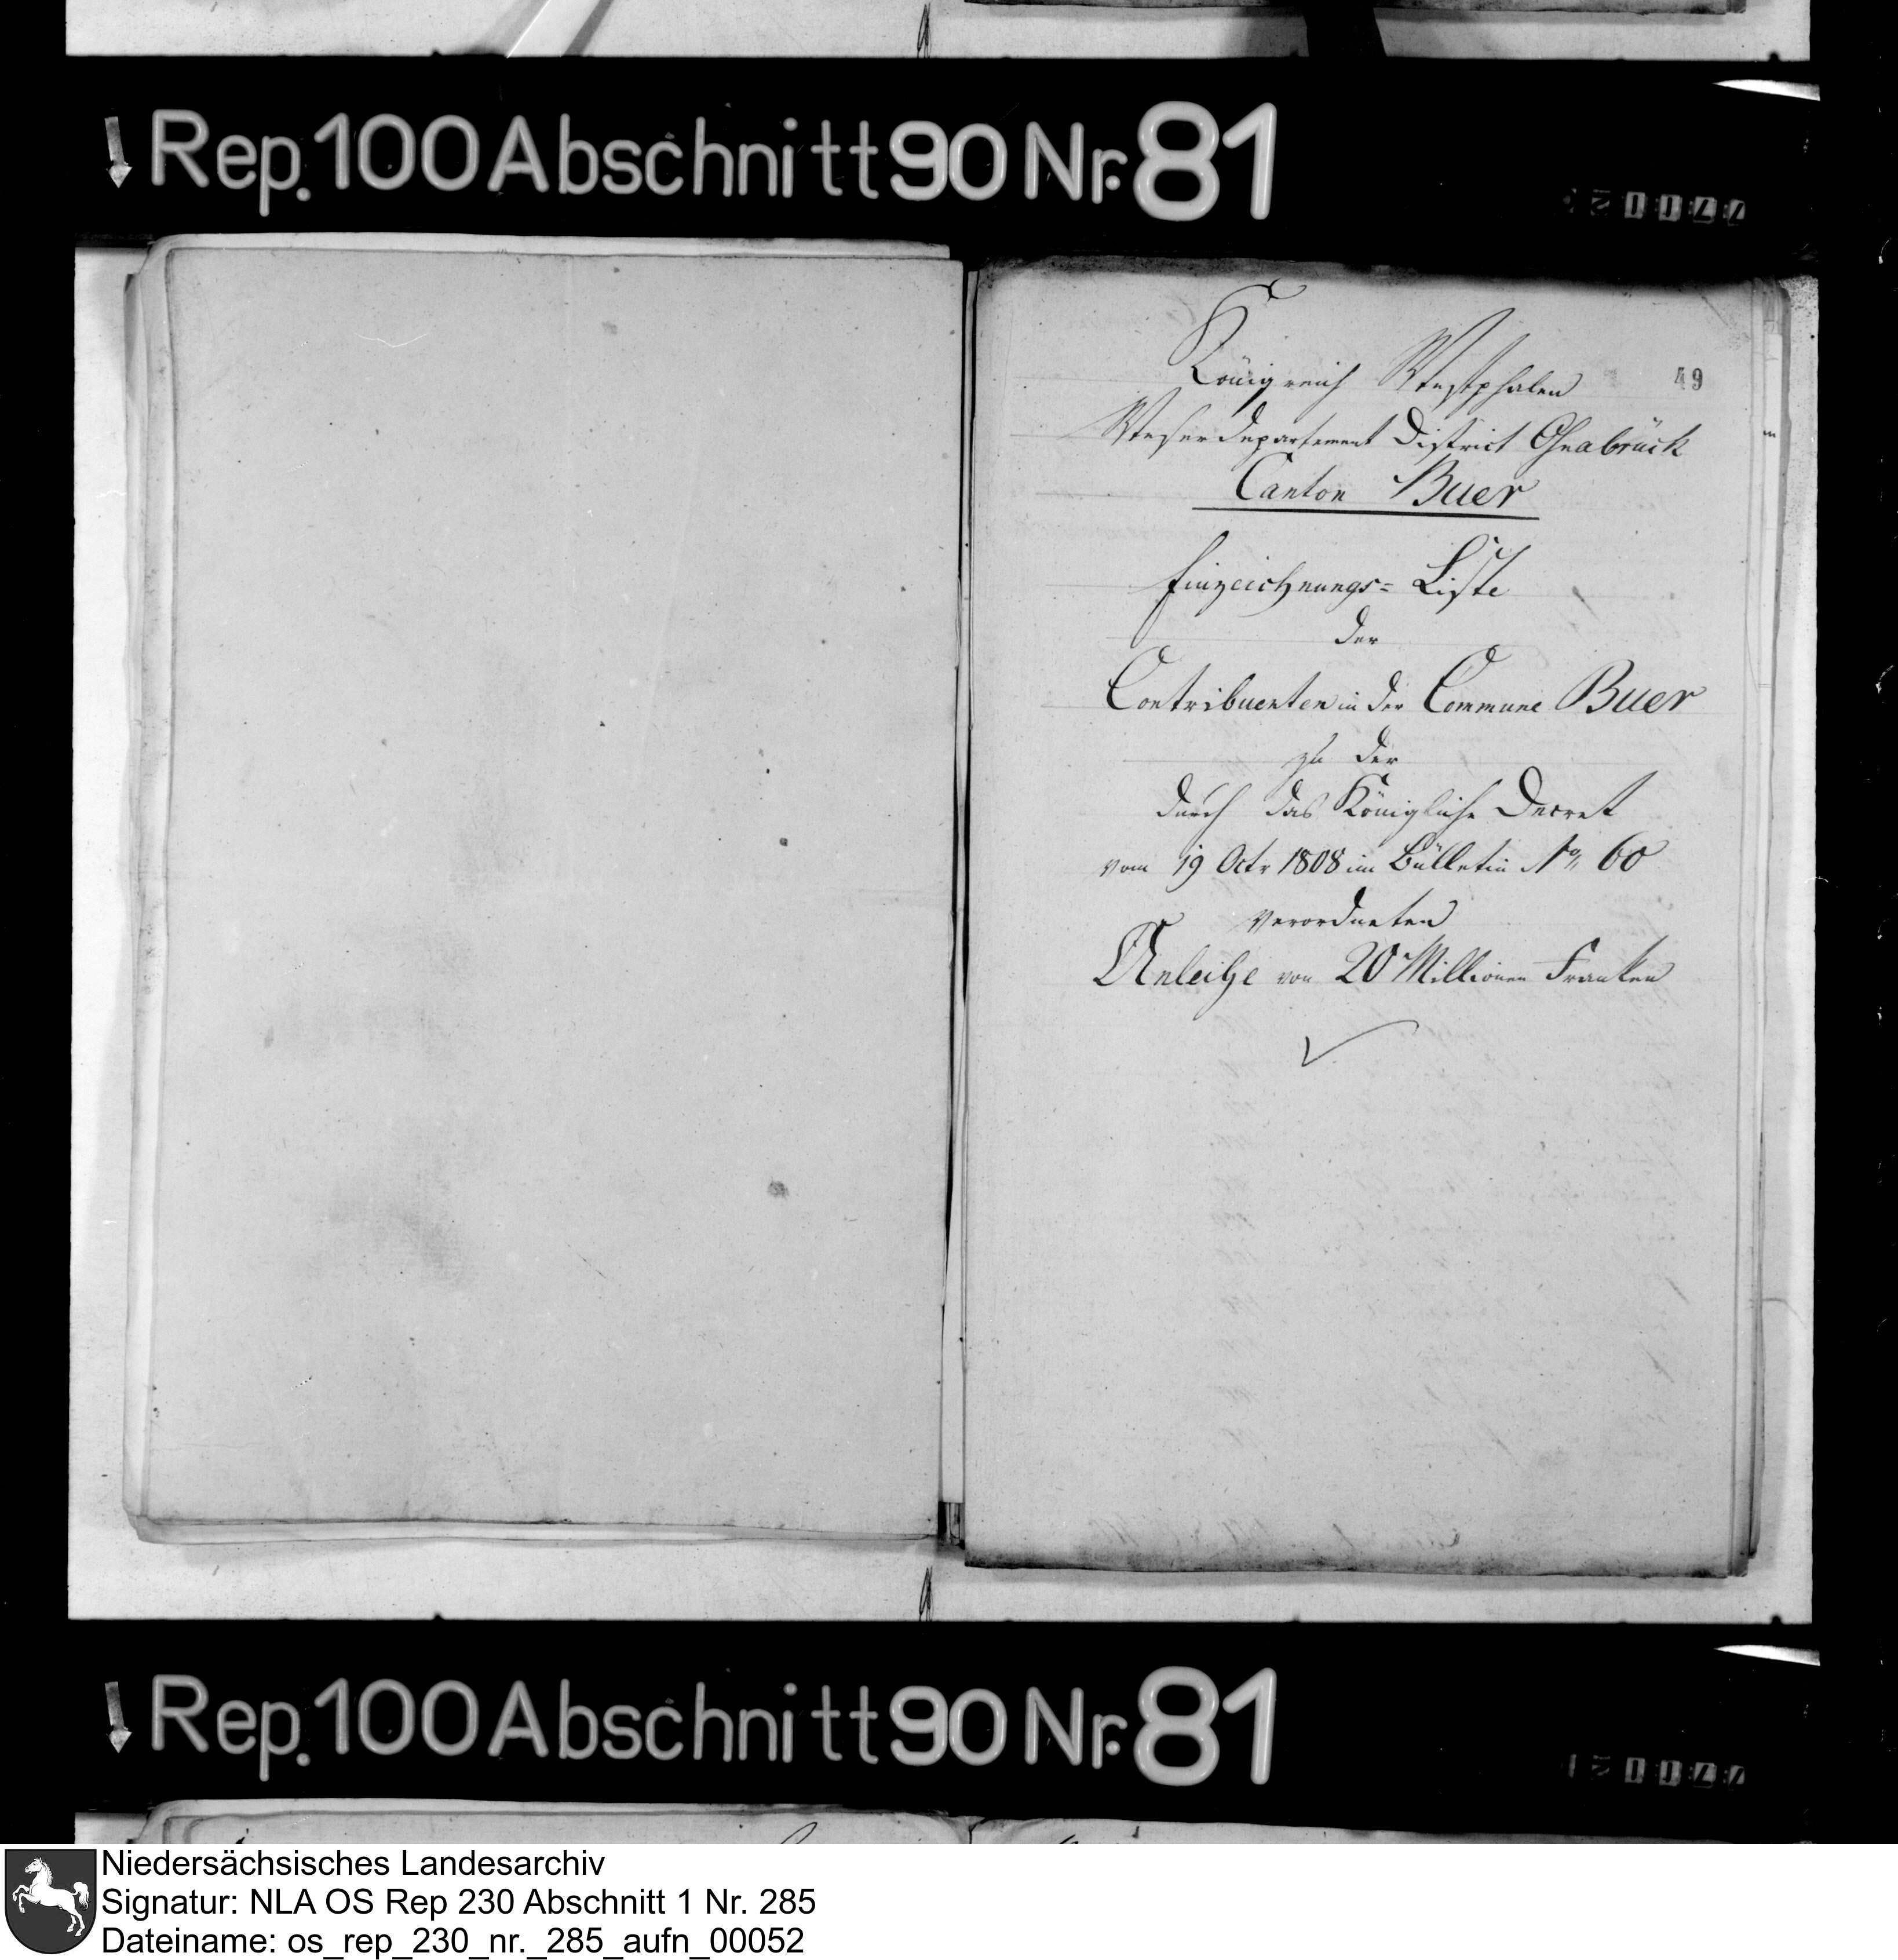 Rep. 100 Abschnitt 90 Nr. 81
49
Königreich Westphalen
Weserdepartement District Osnabrück
Canton Buer
Einzeichnungs= Liste
der
Contribuenten in der Commune Buer
zu der
durch das Königliche Decret
vom 19 Octr 1808 im Bülletin No 60
verordneten
Anleihe von 20 Millionen Franken
Rep. 100 Abschnitt 90 Nr. 81
Niedersächsisches Landesarchiv
Signatur: NLA OS Rep 230 Abschnitt 1 Nr. 285
Dateiname: os_rep_230_nr._285_aufn_00052